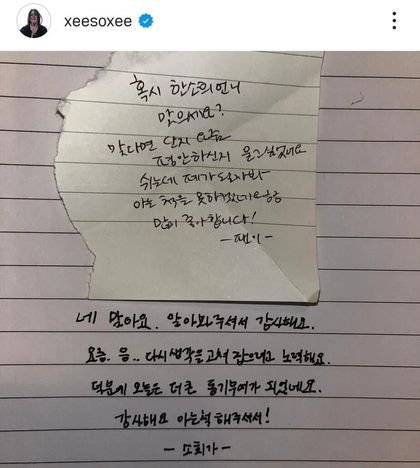 xeesoxee
혹시 한소희언니
맞으세요?
맞다면 단지 요즘
평안하신지 묻고싶었어요
쉬는데 폐가 될까봐
아는 척을 못하겠어요ㅎㅎ
많이 좋아합니다!
- 팬이 -
네 맞아요. 알아봐주셔서 감사해요.
요즘. 음.. 다시 생각을 고쳐 잡으려고 노력해요.
덕분에 오늘은 더 큰 동기부여가 되었네요.
감사해요 아는척 해주셔서!
- 소희가 -